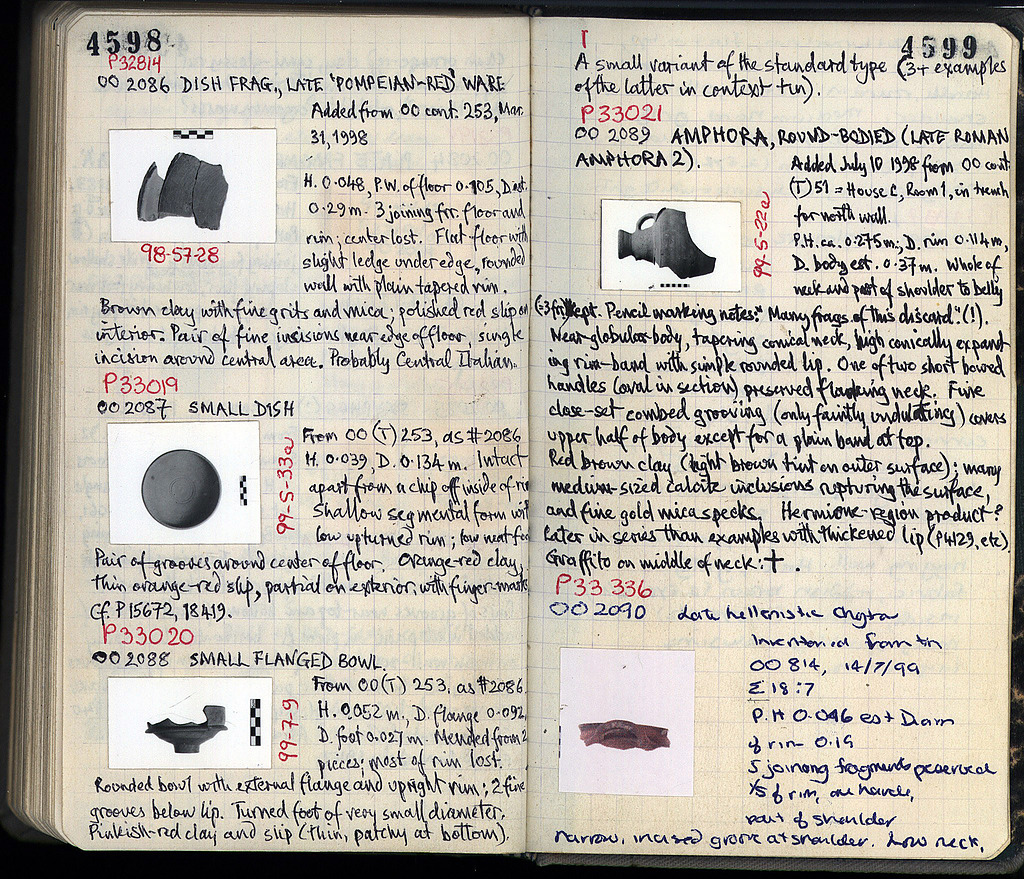 4598
P32814
OO 2086 DISH FRAG., LATE 'POMPEIAN-RED' WARE
Added from OO cont. 253, Mar.
31, 1998
H. 0.048, P.W. of floor 0.105, D. est.
0.29 m. 3 joining frr. floor and
rim; center lost. Flat floor with
slight ledge under edge, rounded
wall with plain tapered rim.
98-57-28
Brown clay with fine grits and mica; polished red slip on
interior. Pair of fine incisions near edge of floor, single
incision around central area. Probably Central Italian.
P33019
OO 2087 SMALL DISH
From OO (T) 253, as #2086
H. 0.039, D. 0.134 m. Intact
apart from a chip off inside of rim
Shallow segmental form with
low upturned rim; low neat foot
99-5-33a
Pair of grooves around center of floor. Orange-red clay,
thin orange-red slip, partial on exterior, with finger-marks
Cf. P15672, 18419.
P33020
OO 2088 SMALL FLANGED BOWL.
From OO (T) 253, as #2086.
H. 0.052 m., D. flange 0.092,
D. foot 0.027 m. Mended from 2
pieces; most of rim lost.
99-7-9
Rounded bowl with external flange and upright rim; 2 fine
grooves below lip. Turned foot of very small diameter.
Pinkish-red clay and slip (thin, patchy at bottom).
4599
A small variant of the standard type (3+ examples
of the latter in context tin).
P33021
OO 2089 AMPHORA, ROUND-BODIED (LATE ROMAN
AMPHORA 2).
Added July 10 1998 from OO cont
(T) 51 = House C, Room 1, in trench
for north wall.
P.H. ca. 0.275 m., D. rim 0.114 m,
D. body est. 0.37 m. Whole of
neck and part of shoulder to belly
99-5-22a
kept. Pencil marking notes: "Many frags of this discard." (!).
Near-globular body, tapering conical neck, high conically expand
ing rim-band with simple rounded lip. One of two short bowed
handles (oval in section) preserved flanking neck. Fine
close-set combed grooving (only faintly undulating) covers
upper half of body except for a plain band at top.
Red brown clay (light brown tint on outer surface); many
medium-sized calcite inclusions rupturing the surface,
and fine gold mica specks. Hermione-region product?
Later in series than examples with thickened lip (P4129, etc).
Graffito on middle of neck: †.
P33 336
OO 2090 Late hellenistic Chytra
Inventoried from tin
OO 814, 14/7/99
Σ 18:7
P.H 0.046 est Diam
of rim 0.19
5 joining fragments preserved
1/5 of rim, one handle,
part of shoulder
narrow, incised groove at shoulder. Low neck,